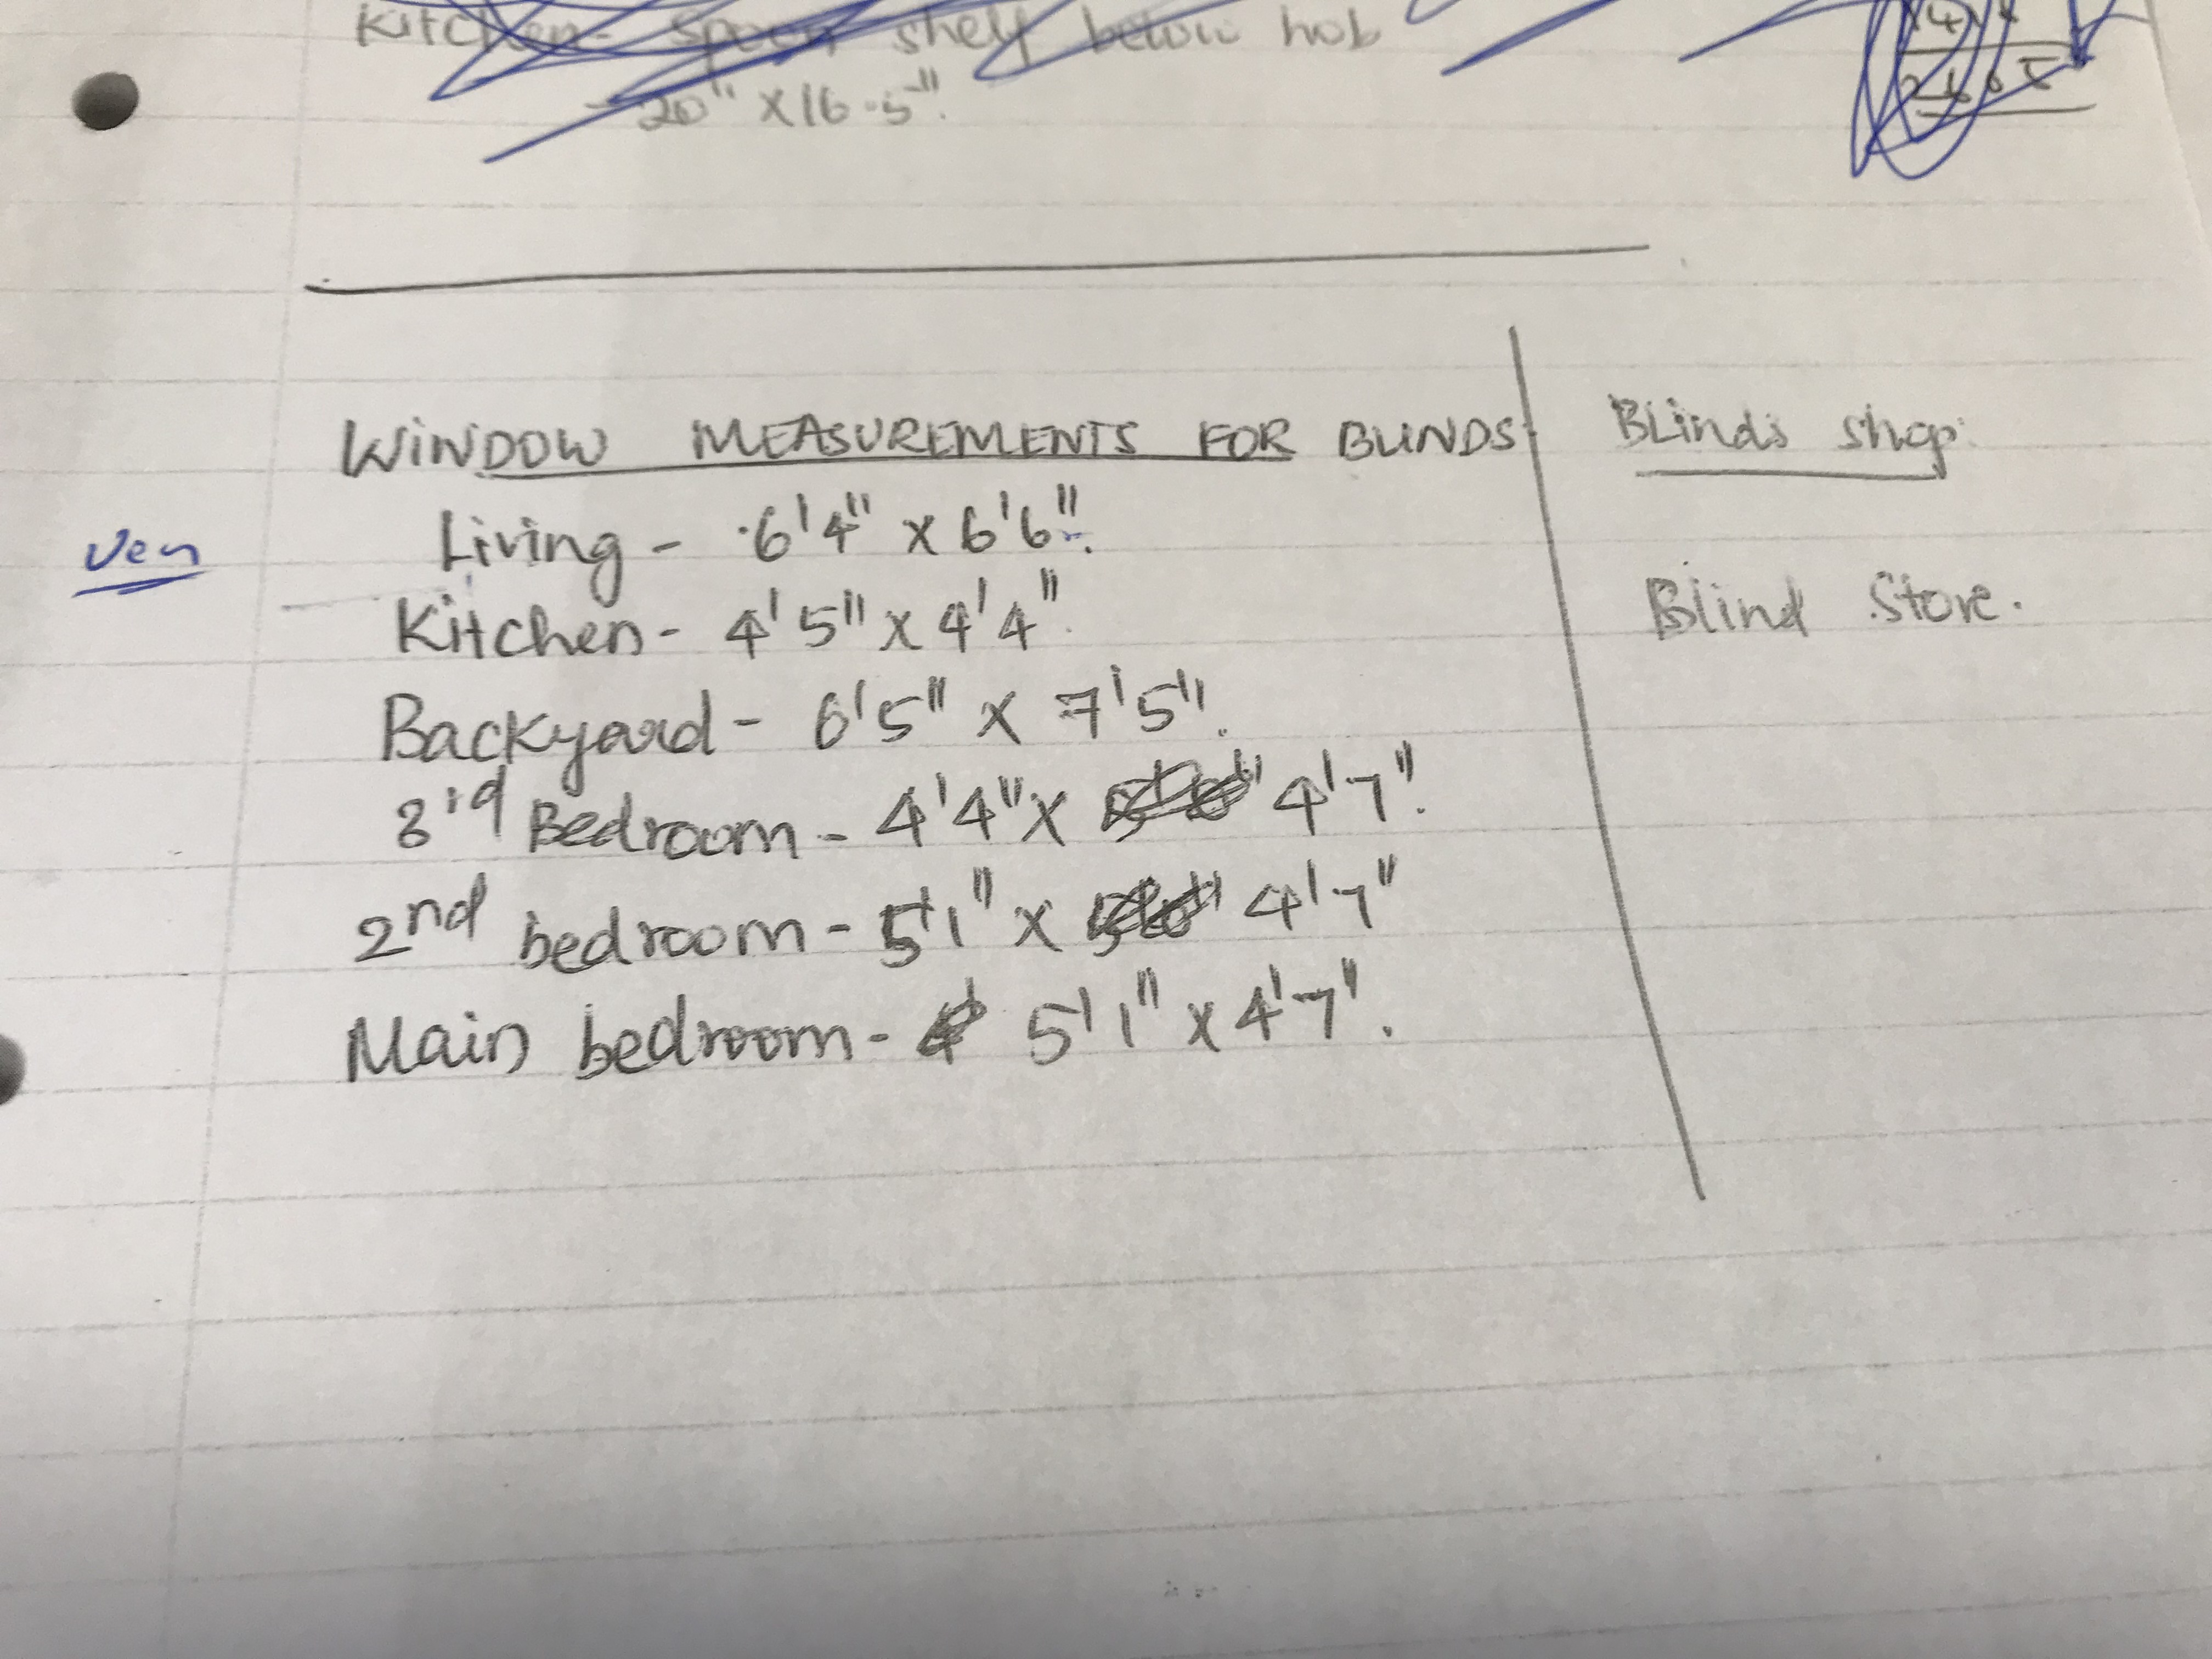 Kitchen - spoon shelf below hob
20" x 16.5".
WINDOW MEASUREMENTS FOR BLINDS
Living - 6'4" x 6'6".
Ven
Kitchen - 4'5" x 4'4".
Backyard - 6'5" x 7'5".
3rd Bedroom - 4'4" x 4'7".
2nd bedroom - 5'1" x 4'7"
Main bedroom - 5'1" x 4'7".
BLinds shop:
Blind Store.